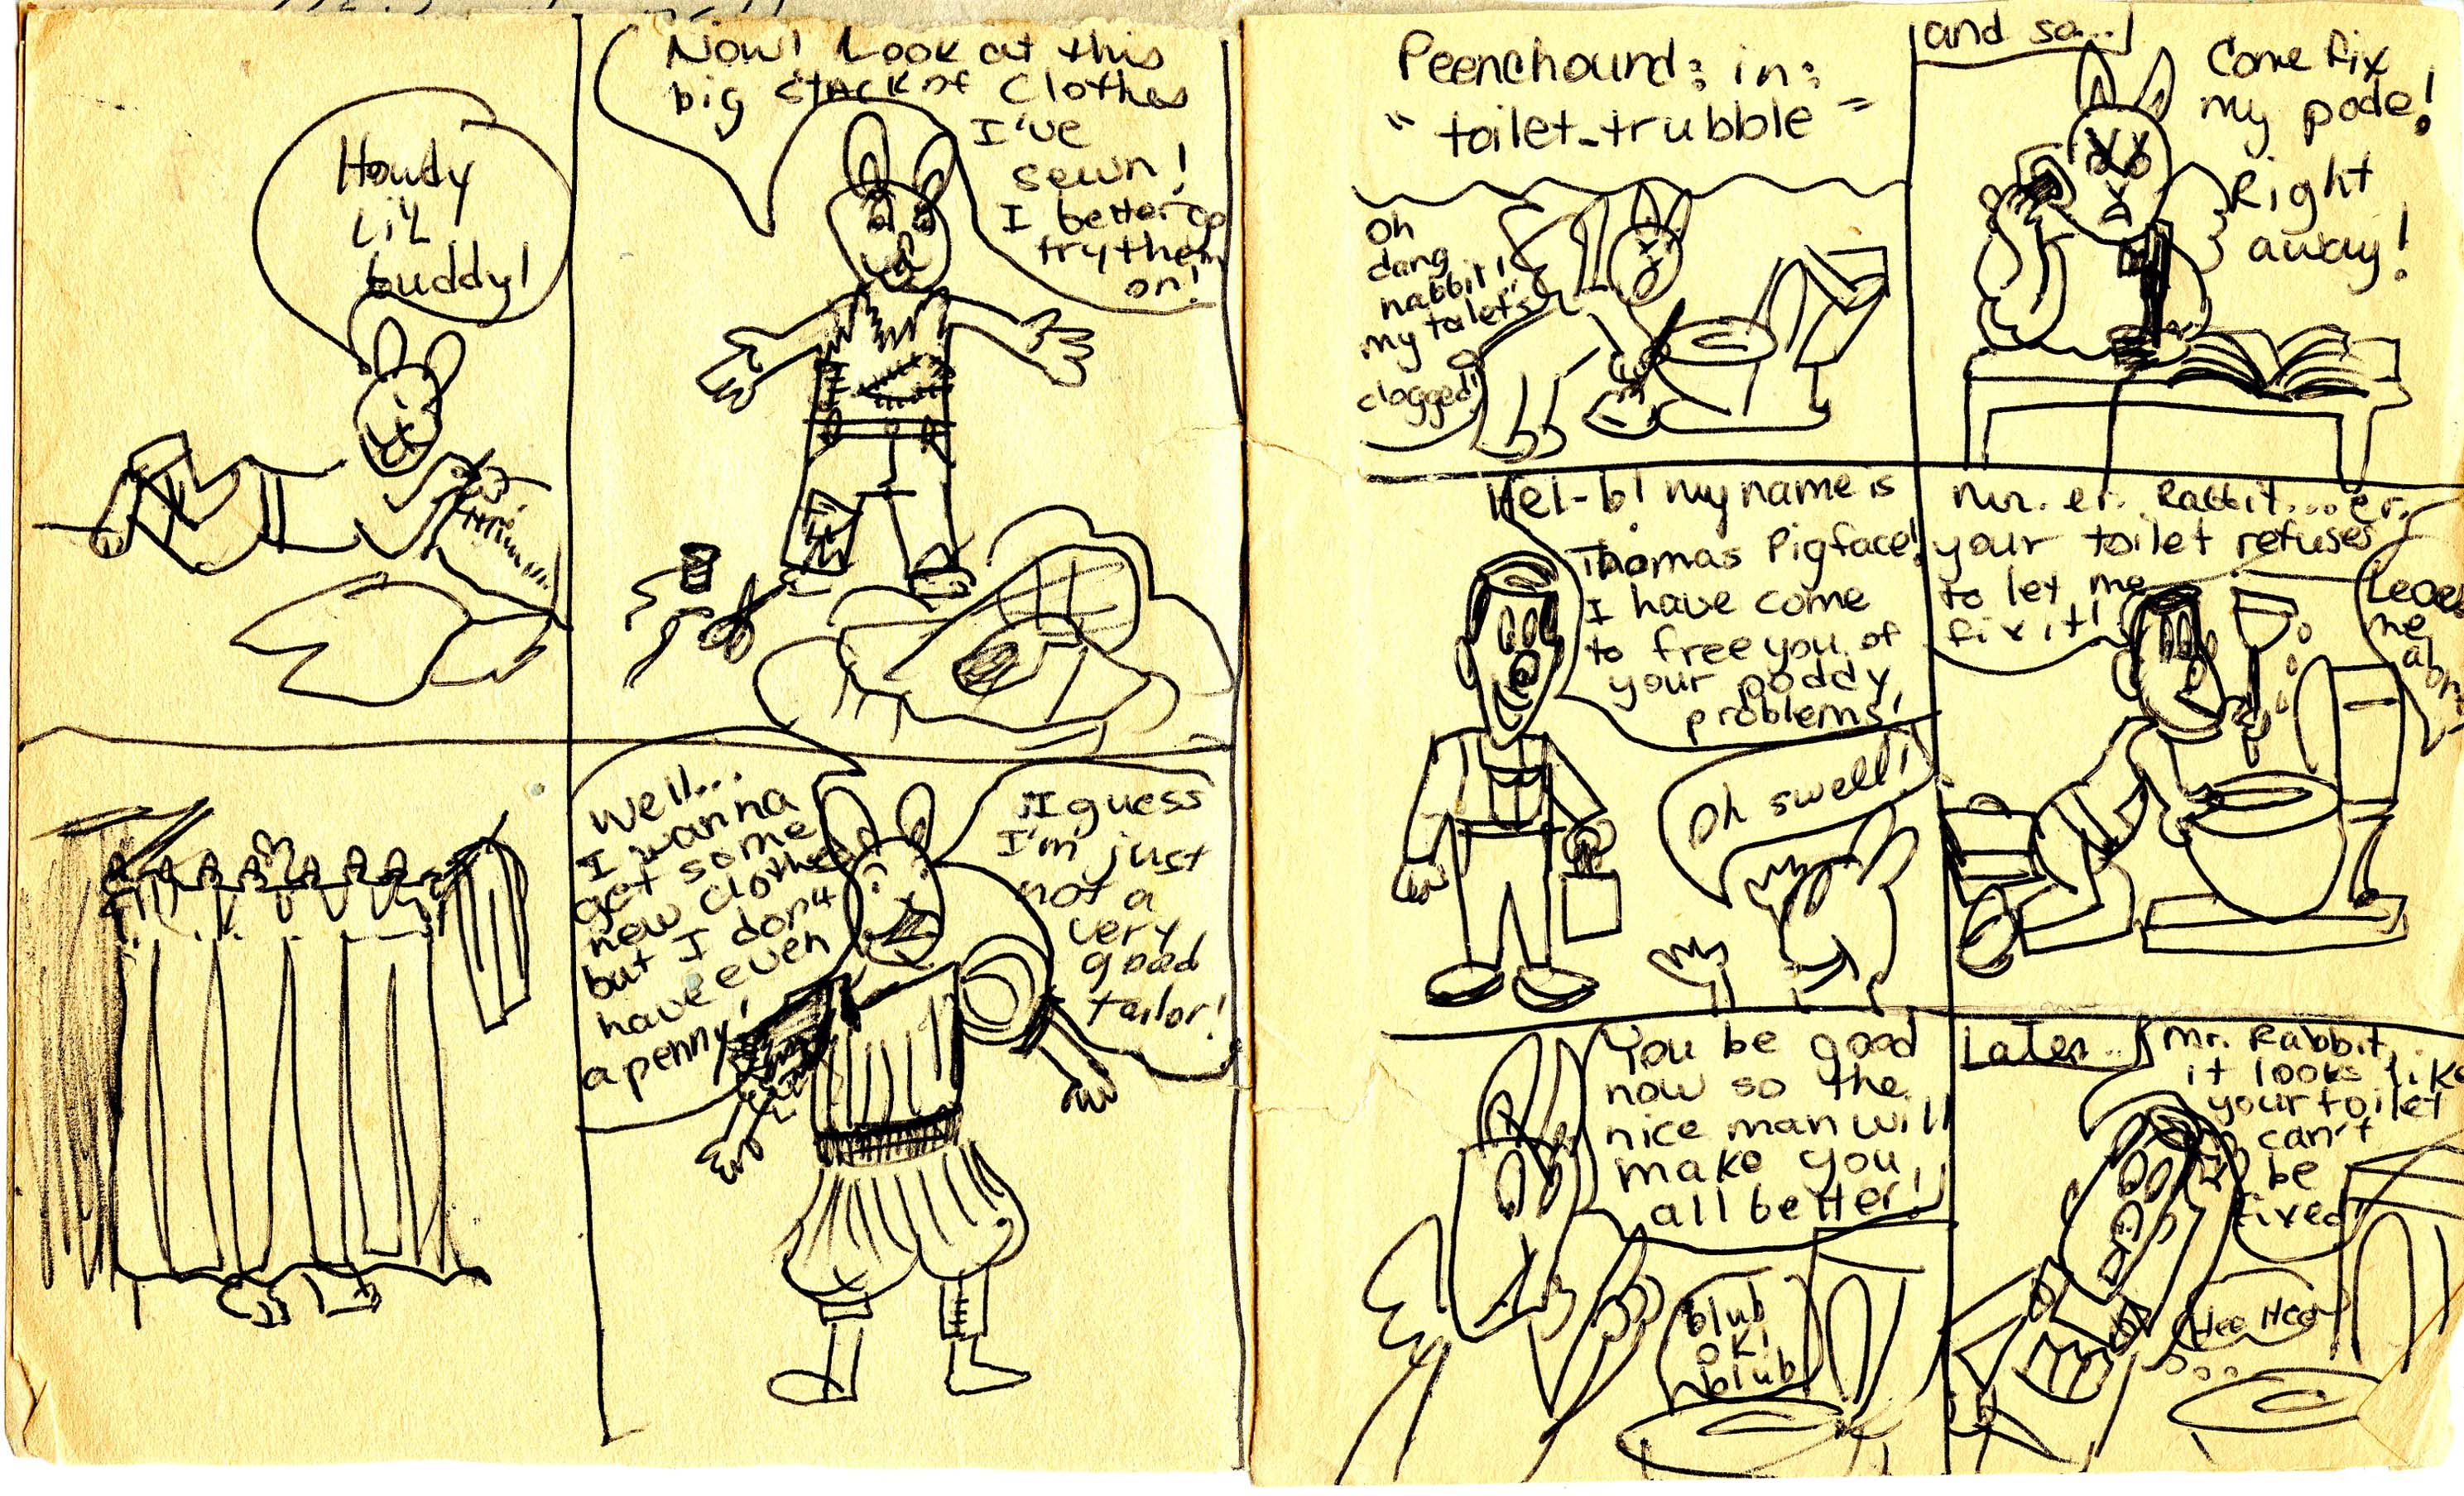 Howdy
Lil
buddy!
Now! Look at this
big stack of clothes
I've
sewn!
I better go
try them
on!
Well...
I wanna
get some
new clothes
but I don't
have even
a penny!
I guess
I'm just
not a
very
good
tailor!
Peenchound: in:
"toilet-trubble"
Oh
dang
nabbit!
my toilet's
clogged!
and so...
Come fix
my pode!
Right
away!
Hel-b! my name is
Thomas Pigface!
I have come
to free you of
your poddy
problems!
Oh swell!
Mr. er. Rabbit...er.
your toilet refuses
to let me
fix it!
me
You be good
now so the
nice man will
make you
all better!
blub
ok!
blub
Later..
Mr. Rabbit,
it looks like
your toilet
can't
be
fixed!
Hee Hee